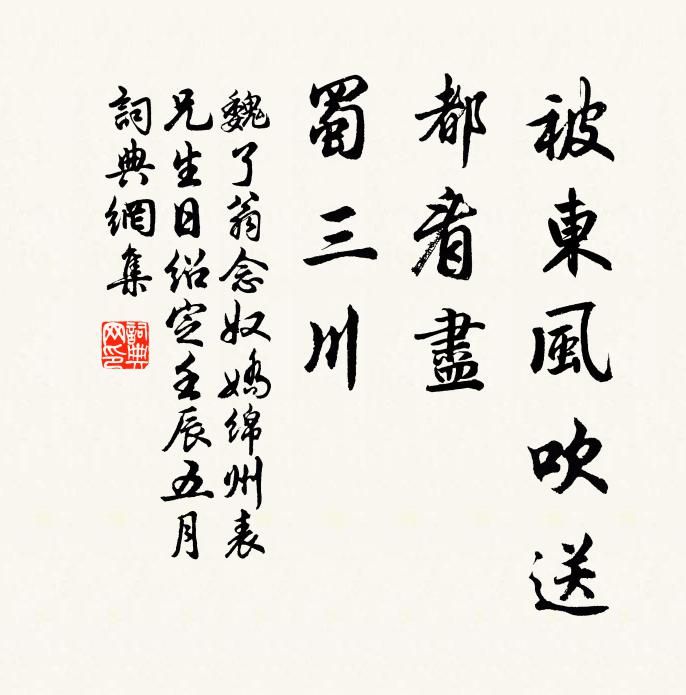 被東風吹送
都看盡
蜀三川
魏了翁念奴嬌綿州表
兄生日紹定壬辰五月
詞典網集
詞典網印